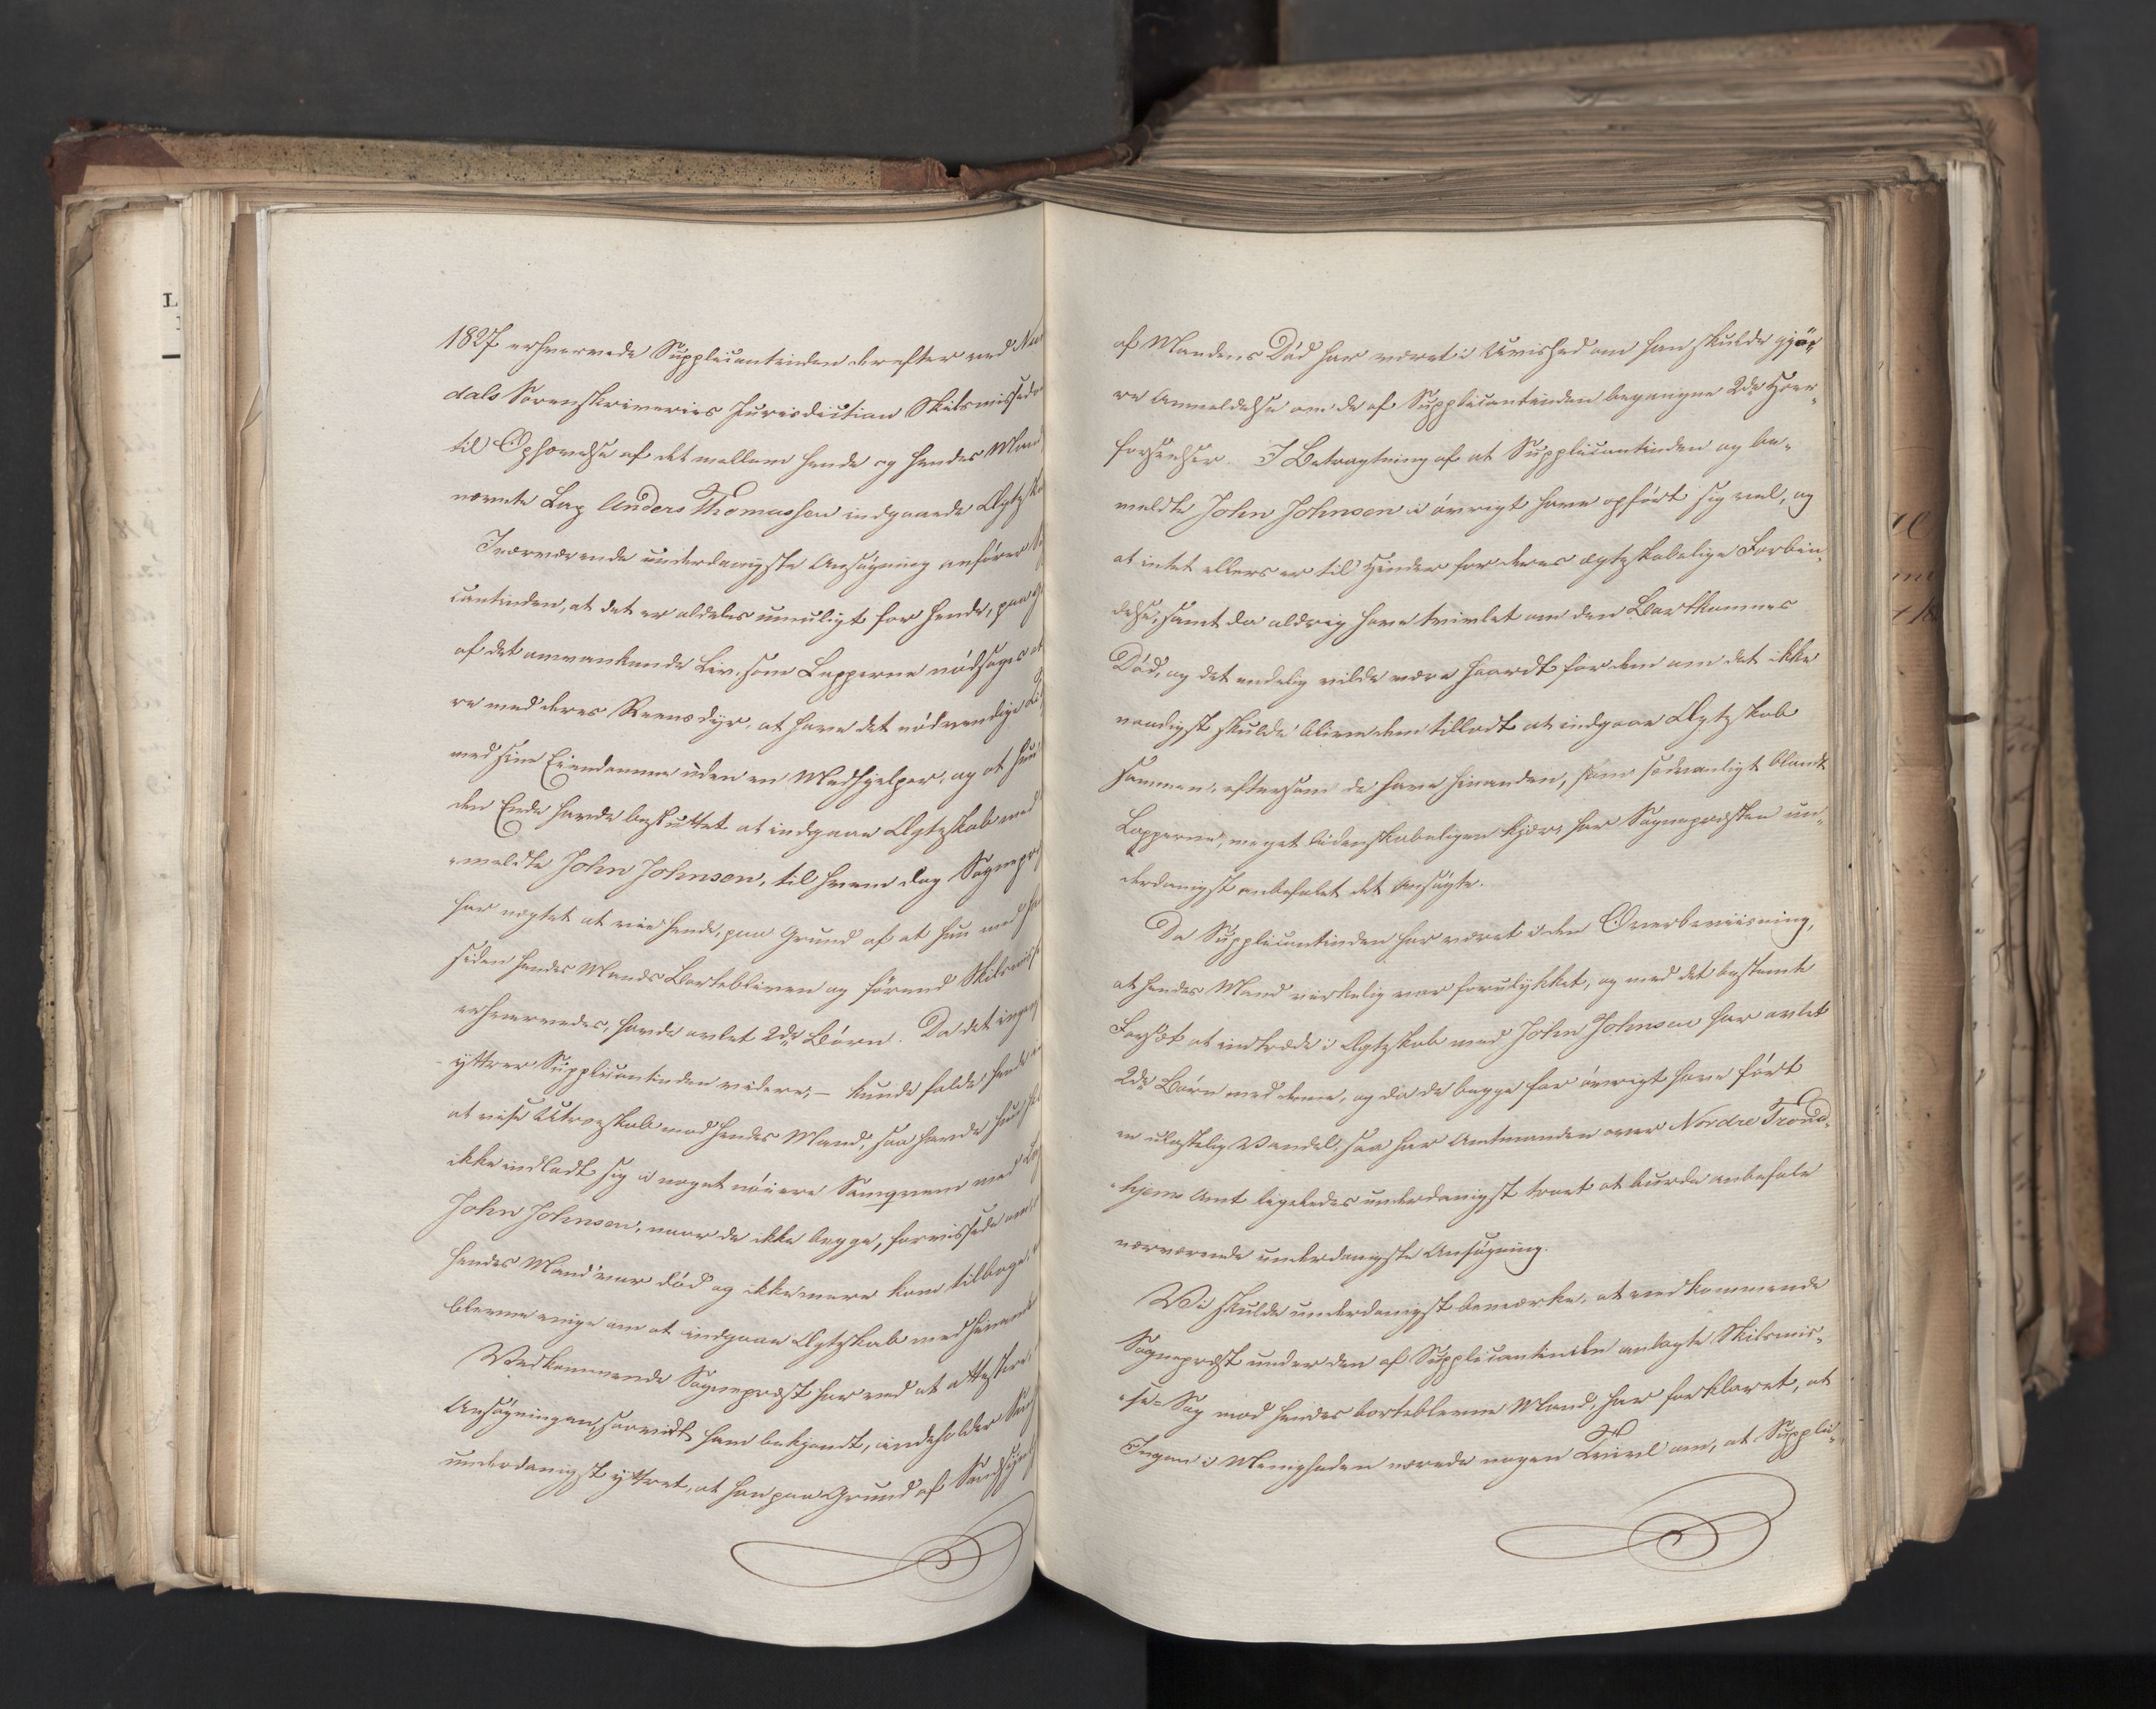 1827 erhvervede Supplicantinden derefter ved Num
dals Sorenskriveries Jurisdiction Skilsmissedom
til Ophævelse af det mellem hende og hendes Mand
nævnte Lap Anders Thomassen indgaaede Ægteskab
I nærværende underdanigste Ansøgning anfører
cantinden, at det er aldeles umuligt for hende, paa
af det omvankende Liv, som Lapperne nødsages at
re med deres Reensdyr, at have det nødvendige
med sine Eiendomme uden en Medhjelper, og at hun
den Ende havde besluttet at indgaae Ægteskab med
meldte John Johnsen, til hvem dog Sognepr
har nægtet at vie hende, paa Grund af at hun med
siden hendes Mands Bortebliven og førend Skilsmisse
erhvervedes, havde avlet 2de Børn. Da det ingen
- yttrer Supplicantinden videre, - kunde falde hende
at vise Utroeskab mod hendes Mand, saa havde hun
ikke indladt sig i noget nøiere Samqvem med Lap
John Johnsen, naar de ikke begge, forvissede om
hendes Mand var død og ikke mere kom tilbage,
bleven enige om at indgaae Ægteskab med hinanden
Vedkommende Sognepræst har ved at attestere
Ansøgningen, saavidt ham bekjendt, indeholder
underdanigst yttret, at han paa Grund af
af Mandens Død har været i Uvished om han skulde gjø-
re Anmeldelse om de af Supplicantinden begangne 2de Hoer-
forseelser. I Betragtning af at Supplicantinden og be-
meldte John Johnsen i øvrigt have opført sig vel, og
at intet ellers er til Hinder for deres ægteskabelige Forbin-
delse, samt da aldrig have tvivlet om den Bortkomnes
Død, og det endelig vilde være haardt for dem om det ikke
naadigst skulde blive dem tilladt at indgaae Ægteskab
sammen, eftersom de have hinanden, som sædvanligt blandt
Lapperne, meget lidenskabeligen kjær, har Sognepræsten un-
derdanigst anbefalet det Ansøgte.
Da Supplicantinden har været i den Overbeviisning,
at hendes Mand virkelig var forulykket, og med det bestemte
Forsæt at indtræde i Ægteskab med John Johnsen har avlet
2de Børn med denne, og da de begge for øvrigt have ført
en ulastelig Vandel, saa har Amtmanden over Nordre Trond-
hjems Amt ligeledes underdanigst troet at burde anbefale
nærværende underdanigste Ansøgning.
Vi skulde underdanigst bemærke, at vedkommende
Sognepræst under den af Supplicantinden anlagte Skilsmis-
se-Sag mod hendes borteblevne Mand, har forklaret, at
Ingen i Menigheden nærede nogen Tvivl om, at Suppli-